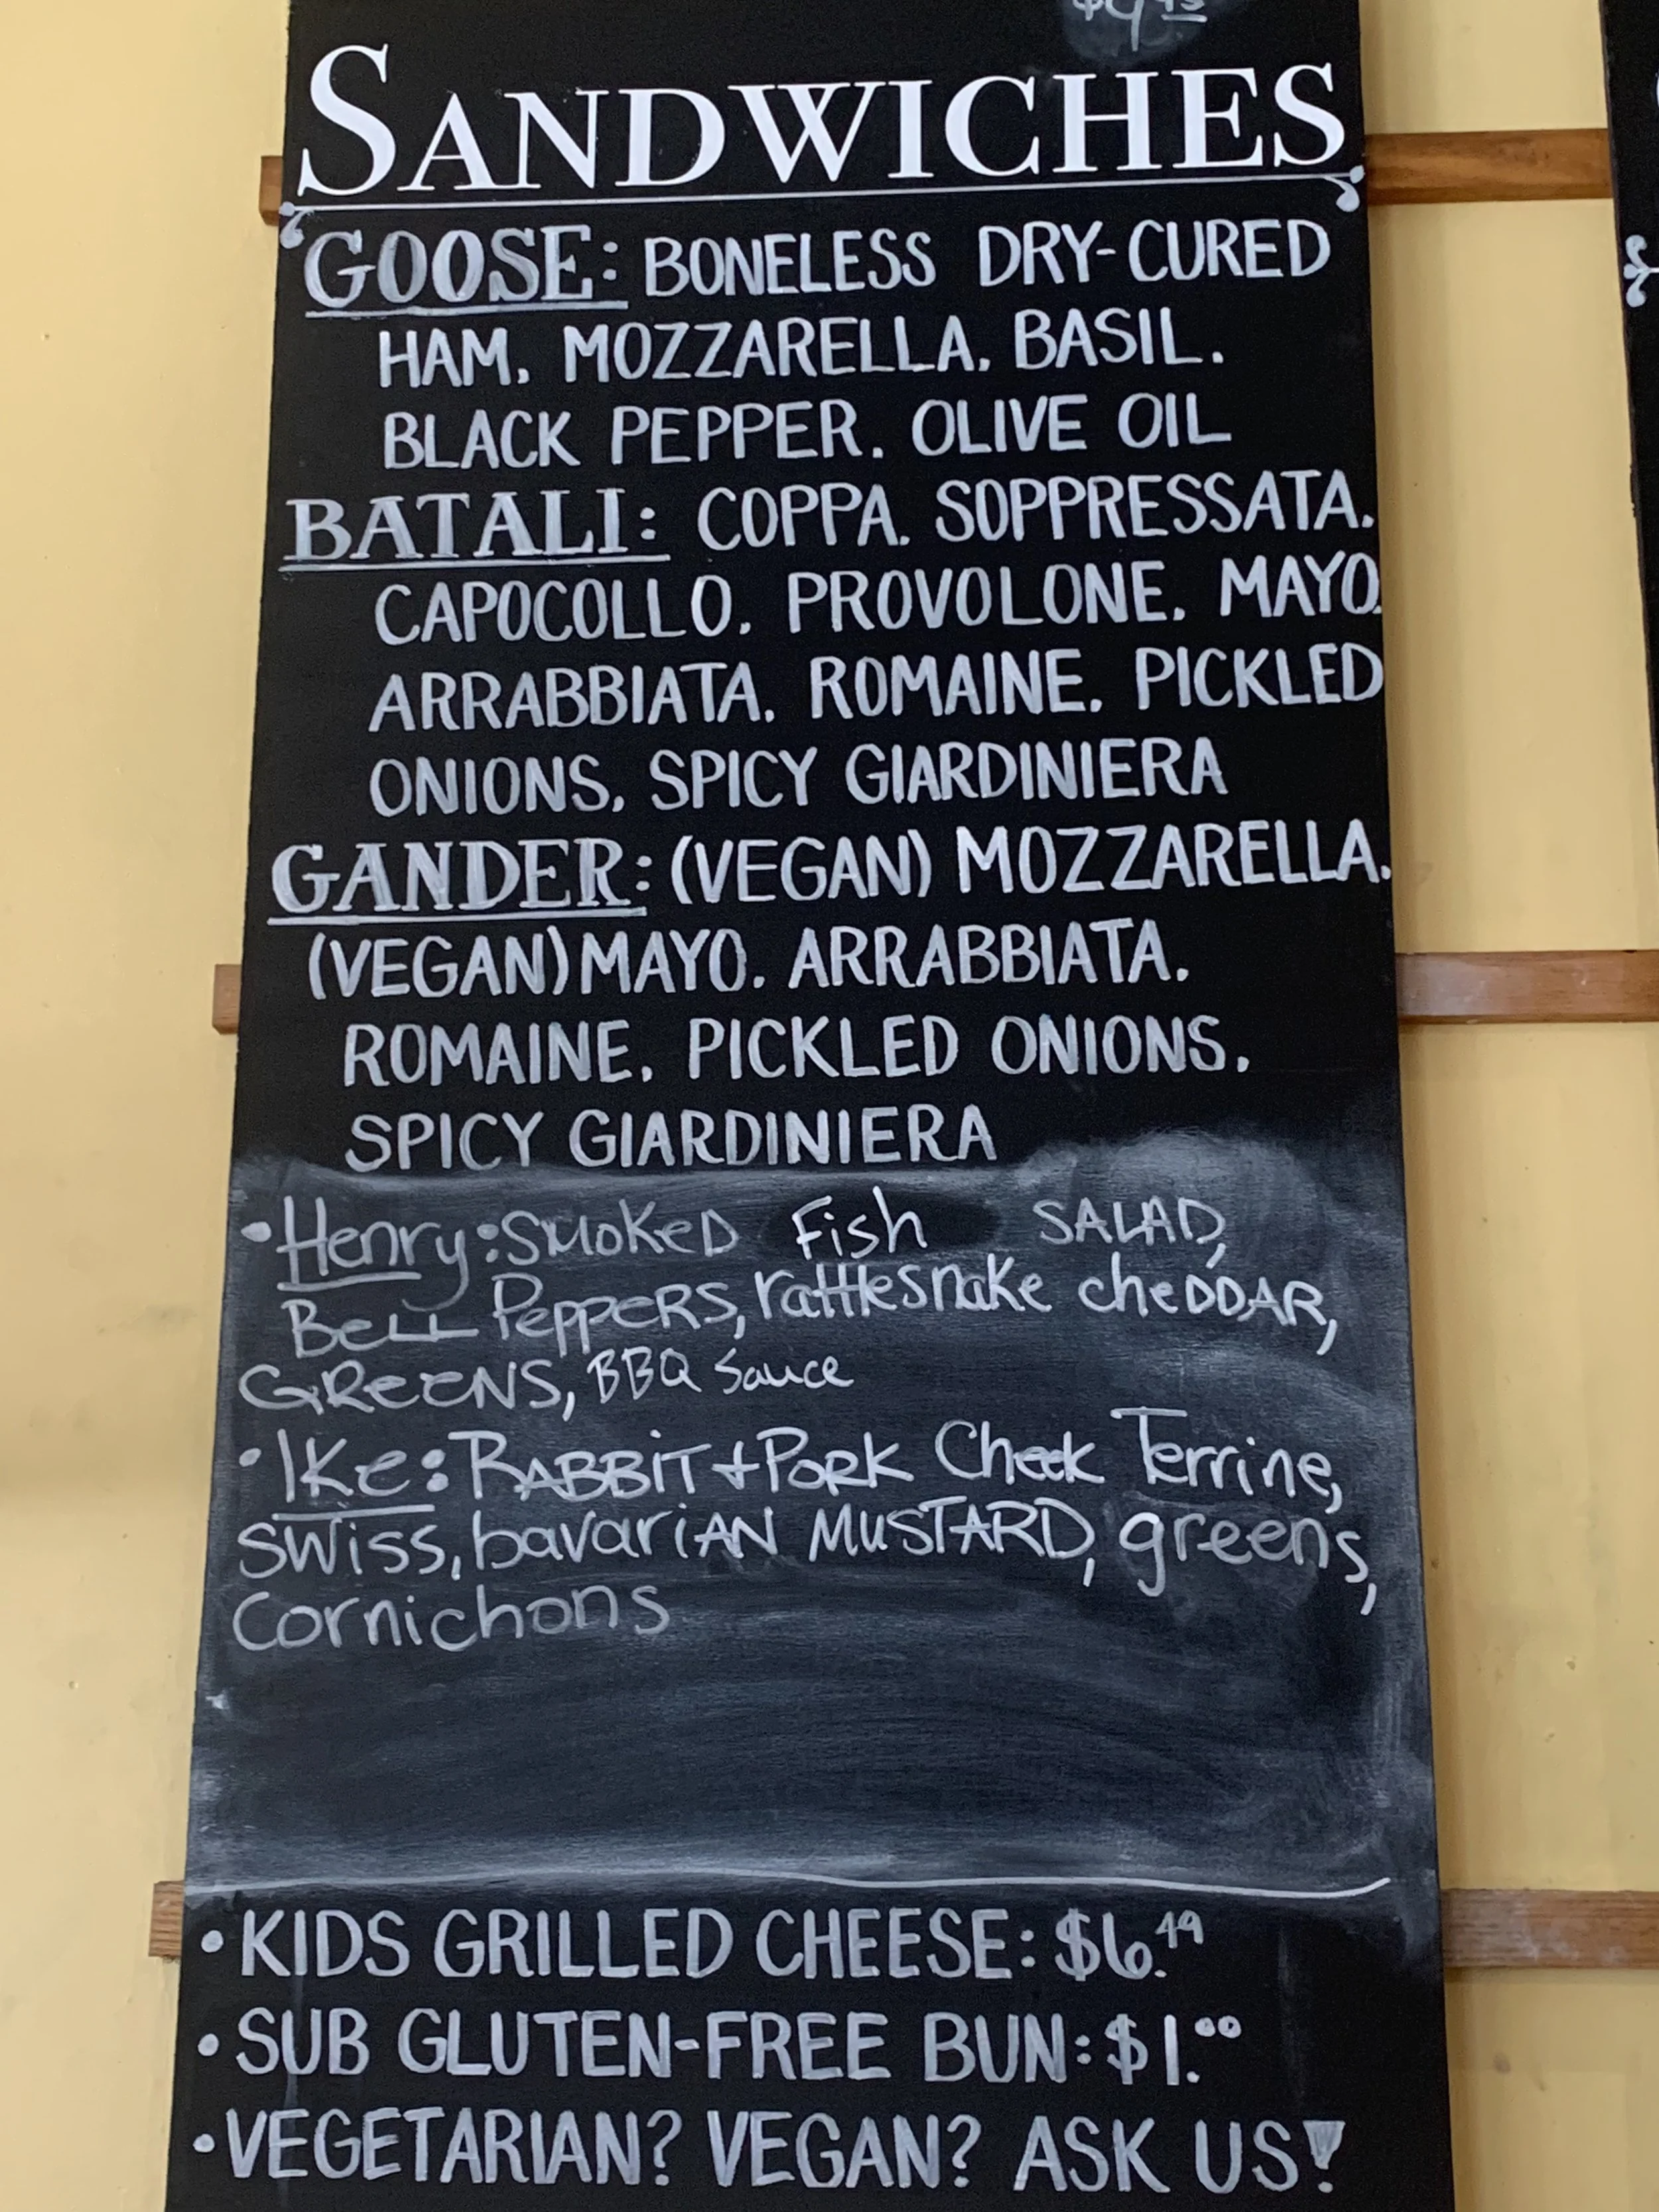 SANDWICHES
GOOSE: BONELESS DRY-CURED
HAM. MOZZARELLA. BASIL.
BLACK PEPPER. OLIVE OIL
BATALI: COPPA. SOPPRESSATA.
CAPOCOLLO. PROVOLONE. MAYO.
ARRABBIATA. ROMAINE. PICKLED
ONIONS. SPICY GIARDINIERA
GANDER: (VEGAN) MOZZARELLA.
(VEGAN) MAYO. ARRABBIATA.
ROMAINE. PICKLED ONIONS.
SPICY GIARDINIERA
• Henry: SMOKED Fish SALAD,
BELL PEPPERS, rattlesnake cheDDAR,
GREENS, BBQ Sauce
• IKe: RABBiT + PORK Cheek Terrine,
SWiss, bavariAN MuSTARD, greens,
Cornichons
• KIDS GRILLED CHEESE: $6.49
• SUB GLUTEN-FREE BUN: $1.00
• VEGETARIAN? VEGAN? ASK US!